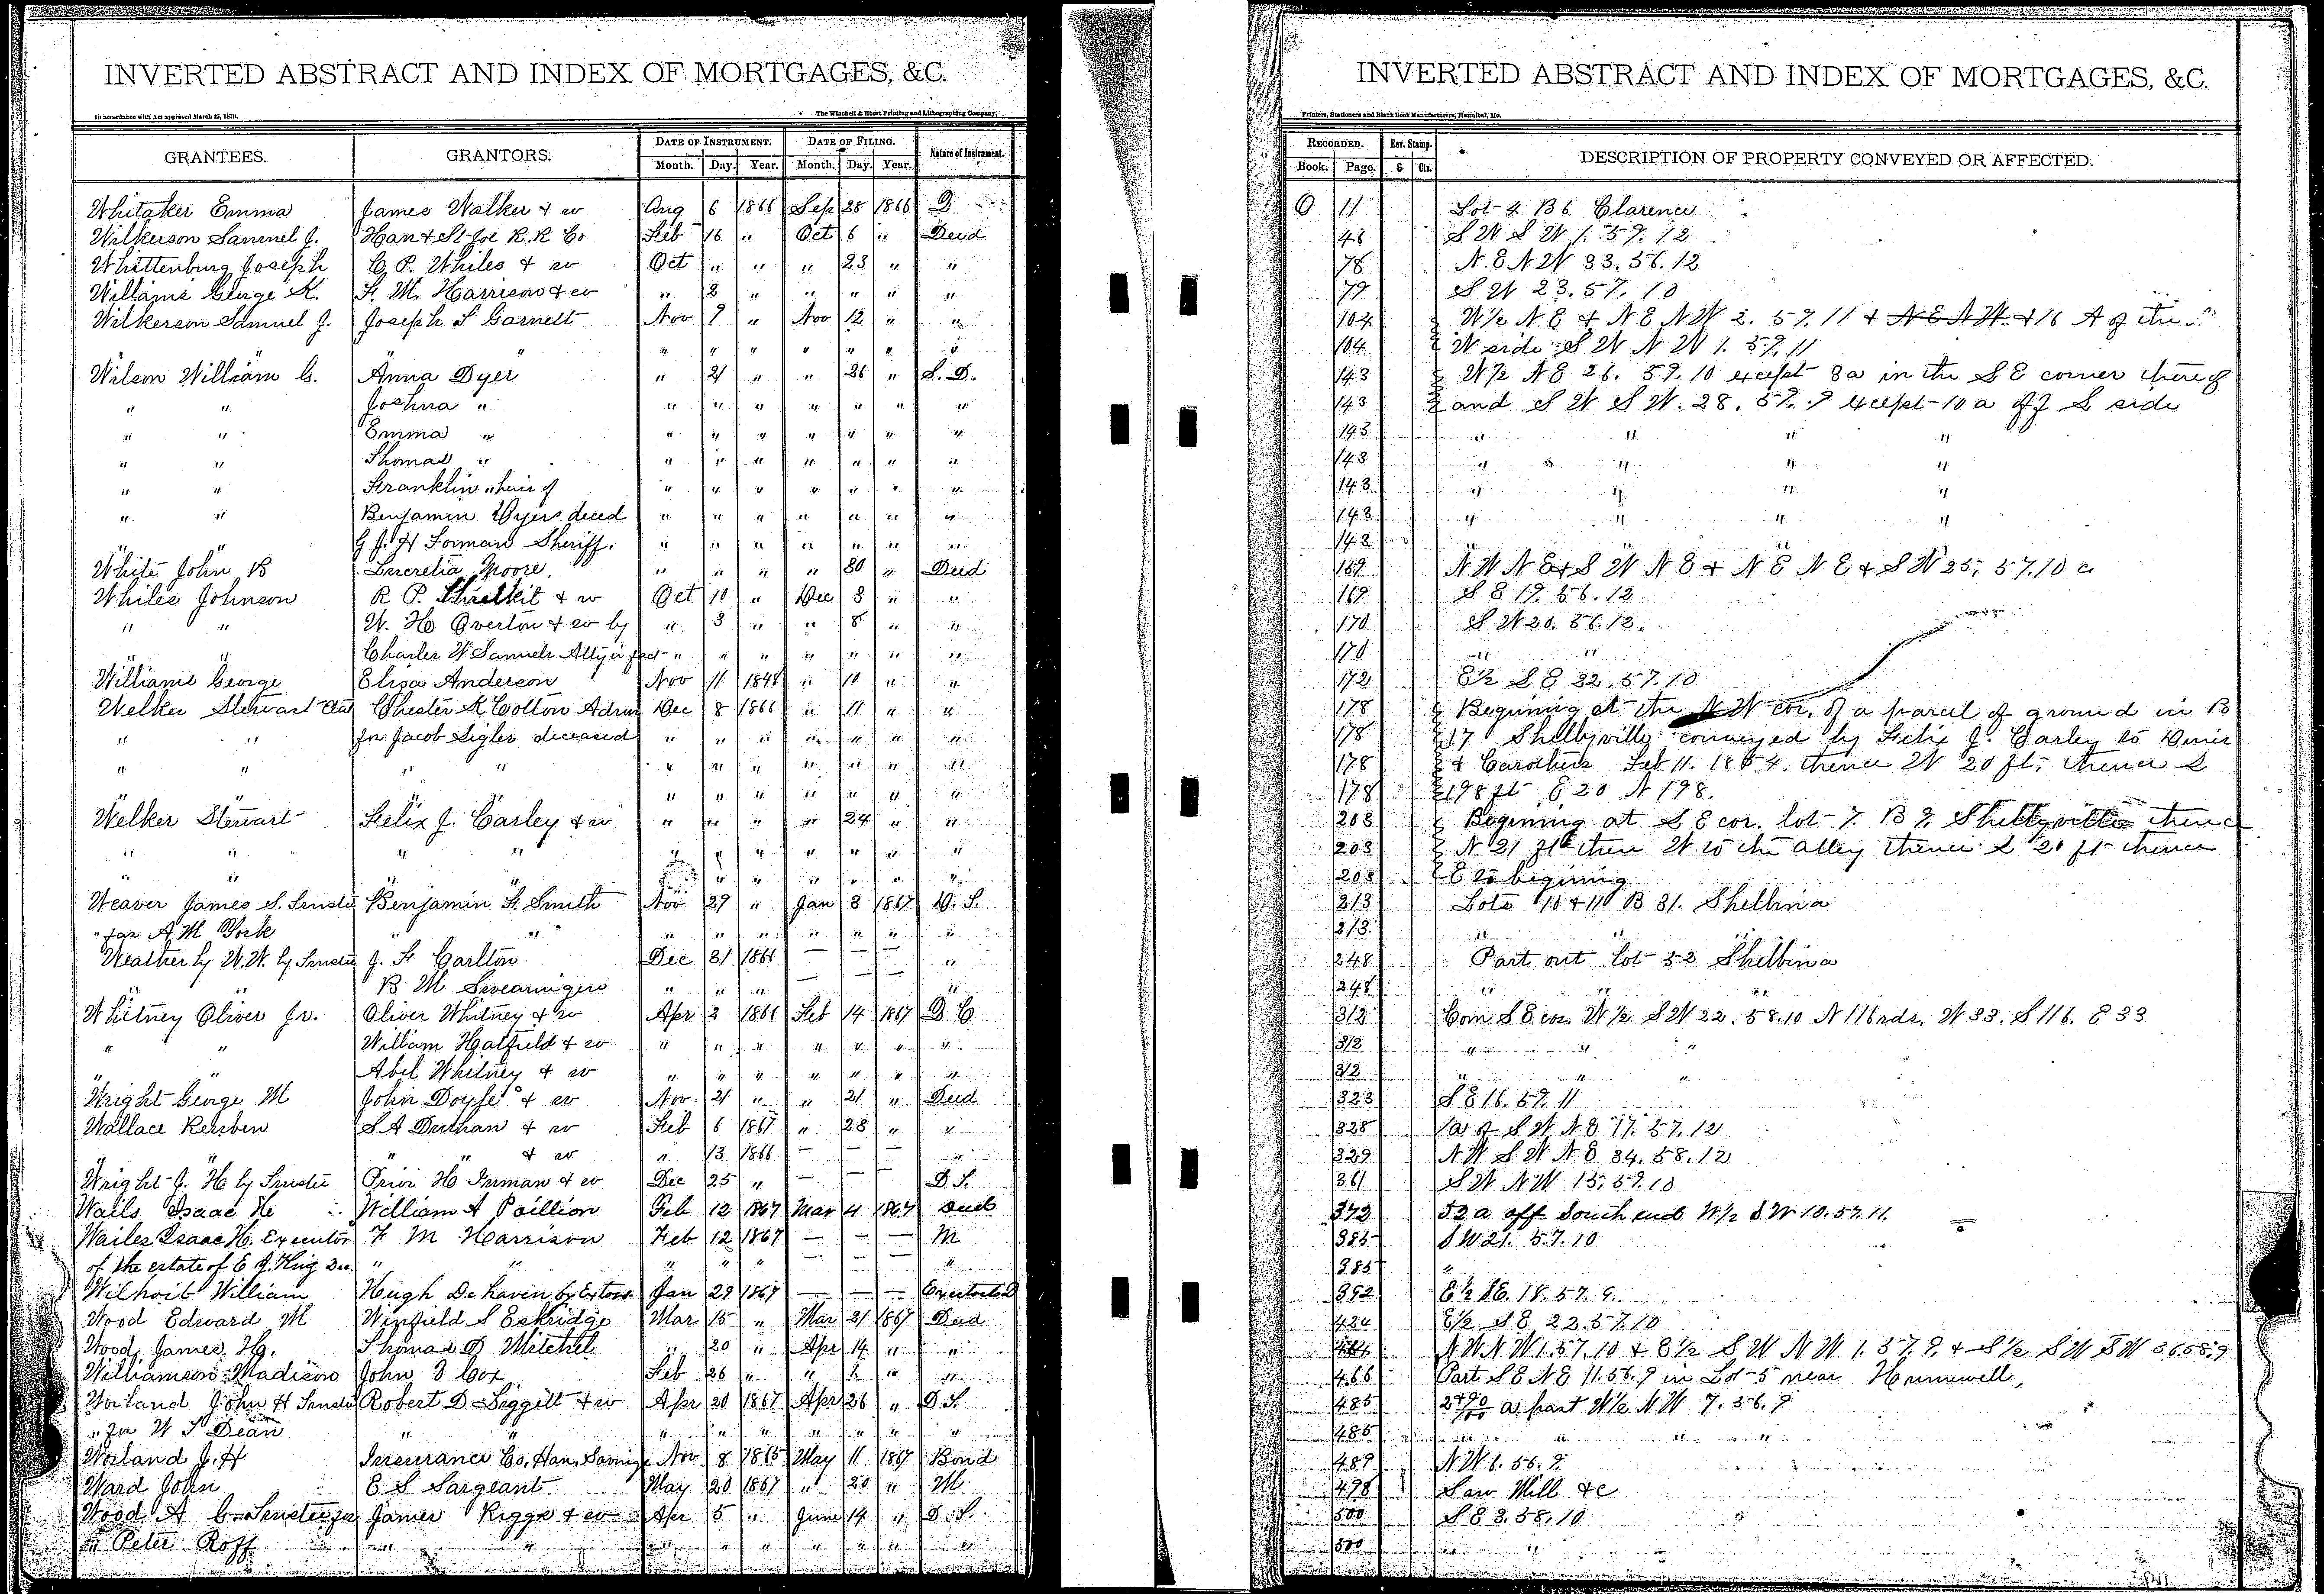 INVERTED ABSTRACT AND INDEX OF MORTGAGES, &C.
In accordance with Act approved March 25, 1870.
The Winchell & Ebert Printing and Lithographing Company,
GRANTEES. GRANTORS. DATE OF INSTRUMENT. DATE OF FILING. Nature of Instrument.
Month. Day. Year. Month. Day. Year.
Whitaker Emma James Walker & w Aug 6 1866 Sep 28 1866 D.
Wilkerson Samuel J. Han & St Joe R.R Co Feb 16 " Oct 6 " Deed
Whittenburg Joseph C. P. Whiles & w Oct " " " 23 " "
Williams George K. F. M. Harrison & w " 2 " " " " "
Wilkerson Samuel J. Joseph S Garnett Nov 9 " Nov 12 " "
" " " " " " " "
Wilson William G. Anna Dyer " 21 " " 26 " S. D.
" " Joshua " " " " " " " "
" " Emma " " " " " " " "
" " Thomas " " " " " " " "
" " Franklin " heirs of " " " " " " "
" " Benjamin Dyers deced " " " " " " "
" " G J. H Forman Sheriff. " " " " " " "
White John B Lucretia Moore. " " " " 30 " Deed
Whiles Johnson R P. & w Oct 10 " Dec 3 " "
" " W. H Overton & w by " 3 " " 8 " "
" " Charles W Samuels Atty in fact " " " " " " "
Williams George Eliza Anderson Nov 11 1848 " 10 " "
Welker Stewart Chester K Cotton Admr Dec 8 1866 " 11 " "
" " for Jacob Sigler deceased " " " " " " "
" " " " " " " " " " "
" " " " " " " " " "
Welker Stewart Felix J. Carley & w " " " " 24 " "
" " " " " " " " " " "
" " " " " " " " " "
Weaver James S. Trustee Benjamin F. Smith Nov 29 " Jan 3 1867 D. T.
" for A M York " " " " " " " " "
Weatherby W. W. by Trustee J. F Carlton Dec 31 1866 — — — "
" " B M Swearingen " " " — — — "
Whitney Oliver Jr. Oliver Whitney & w Apr 2 1866 Feb 14 1867 D C
" " William Hatfield & w " " " " " " "
" " Abel Whitney & w " " " " " " "
Wright George M John Doyle & w Nov 21 " " 21 " Deed
Wallace Reuben S A Durham & w Feb 6 1867 " 28 " "
" " " & w " 13 1866 — — — "
Wright J. H by Trustee Prior H Inman & w Dec 25 " — — — D T.
Wails Isaac H William A Poillion Feb 12 1867 Mar 4 1867 Deed
Wailes Isaac H. Executor F M Harrison Feb 12 1867 — — — M
of the estate of E J. King Dec. " " " " " — — — "
Wilhoit William Hugh De haven by Extors Jan 29 1867 — — —
Wood Edward M Winfield S Eskridge Mar 15 " Mar 21 1867 Deed
Wood James H. Thomas D Mitchel " 20 " Apr 14 " "
Williamson Madison John Cox Feb 26 " " " "
Worland John H Trustee Robert D Liggett & w Apr 20 1867 Apr 26 " D T.
" for W T Dean " " " " " " " " "
Worland J. H Insurance Co. Han. Savings Nov 8 1865 May 11 1867 Bond
Ward John E. S Sargeant May 20 1867 " 20 " M
Wood A C Trustee for James Riggs & w Apr 5 " June 14 " D. T.
" Peter Roff " " " " " " " " "
INVERTED ABSTRACT AND INDEX OF MORTGAGES, &C.
Printers, Stationers and Blank Book Manufacturers, Hannibal, Mo.
RECORDED. Rev. Stamp. DESCRIPTION OF PROPERTY CONVEYED OR AFFECTED.
Book. Page. $ Cts.
O 11 Lot 4 B 6 Clarence
48 S W S W 1. 57. 12
78 N. E N W 33. 56. 12
79 S W 23. 57. 10
104 W ½ N. E & N E N W 2. 57. 11 & N E N W. & 16 A of the
104 W side S W N W 1. 57. 11
143 W ½ N E 26. 59. 10 except 8a in the S E corner thereof
143 and S W S W. 28. 57. 9 except 10 a off S side
143 " " " "
143 " " " "
143 " " " "
143 " " " "
143 " " "
159 N W N E & S W N E & N E N E & S W 25. 57. 10 a
169 S E 19. 56. 12
170 S W 20. 56. 12.
170 " "
172 E ½ S E 32. 57. 10
178 Beginning at the N W cor. of a parcel of ground in B
178 17 Shelbyville conveyed by Felix J. Carley to
178 & Carothers Feb 11. 1854. thence W 20 ft, thence S
178 198 ft E 20 N 198.
203 Begining at S E cor. lot 7. B 9. Shelbyville thence
203 N. 21 ft then W to the alley thence S 20 ft thence
203 E to begining
213 Lots 10 & 11 B 31. Shelbina
213 " "
248 Part out lot 52 Shelbina
248 " "
312 Com. S E cor. W ½ S W 22. 58. 10 N 116 rds. W 33. S 116. E 33
312 " " "
312 " " "
323 S E 16. 57. 11
328 1a of S W. N E 17. 57. 12
329 N W S W N E 34. 58. 12
361 S W N W 15. 57. 10
372 52 a off South end W ½ S W 10. 57. 11.
385 S W 21. 57. 10
385 "
392 E ½ S E. 18. 57. 9.
424 E ½ S E 22. 57. 10
464 N W N W 1. 57. 10 & E ½ S W N W 1. 57. 9. & S ½ S W S W 36. 58. 9
466 Part S E N E 11. 56. 9 in Lot 5 near Hunnewell,
485 a part W ½ N W 7. 56. 9
485 " " " "
489 N W 6. 56. 9.
498 Saw Mill &c
500 S E 3. 58. 10
500 " "